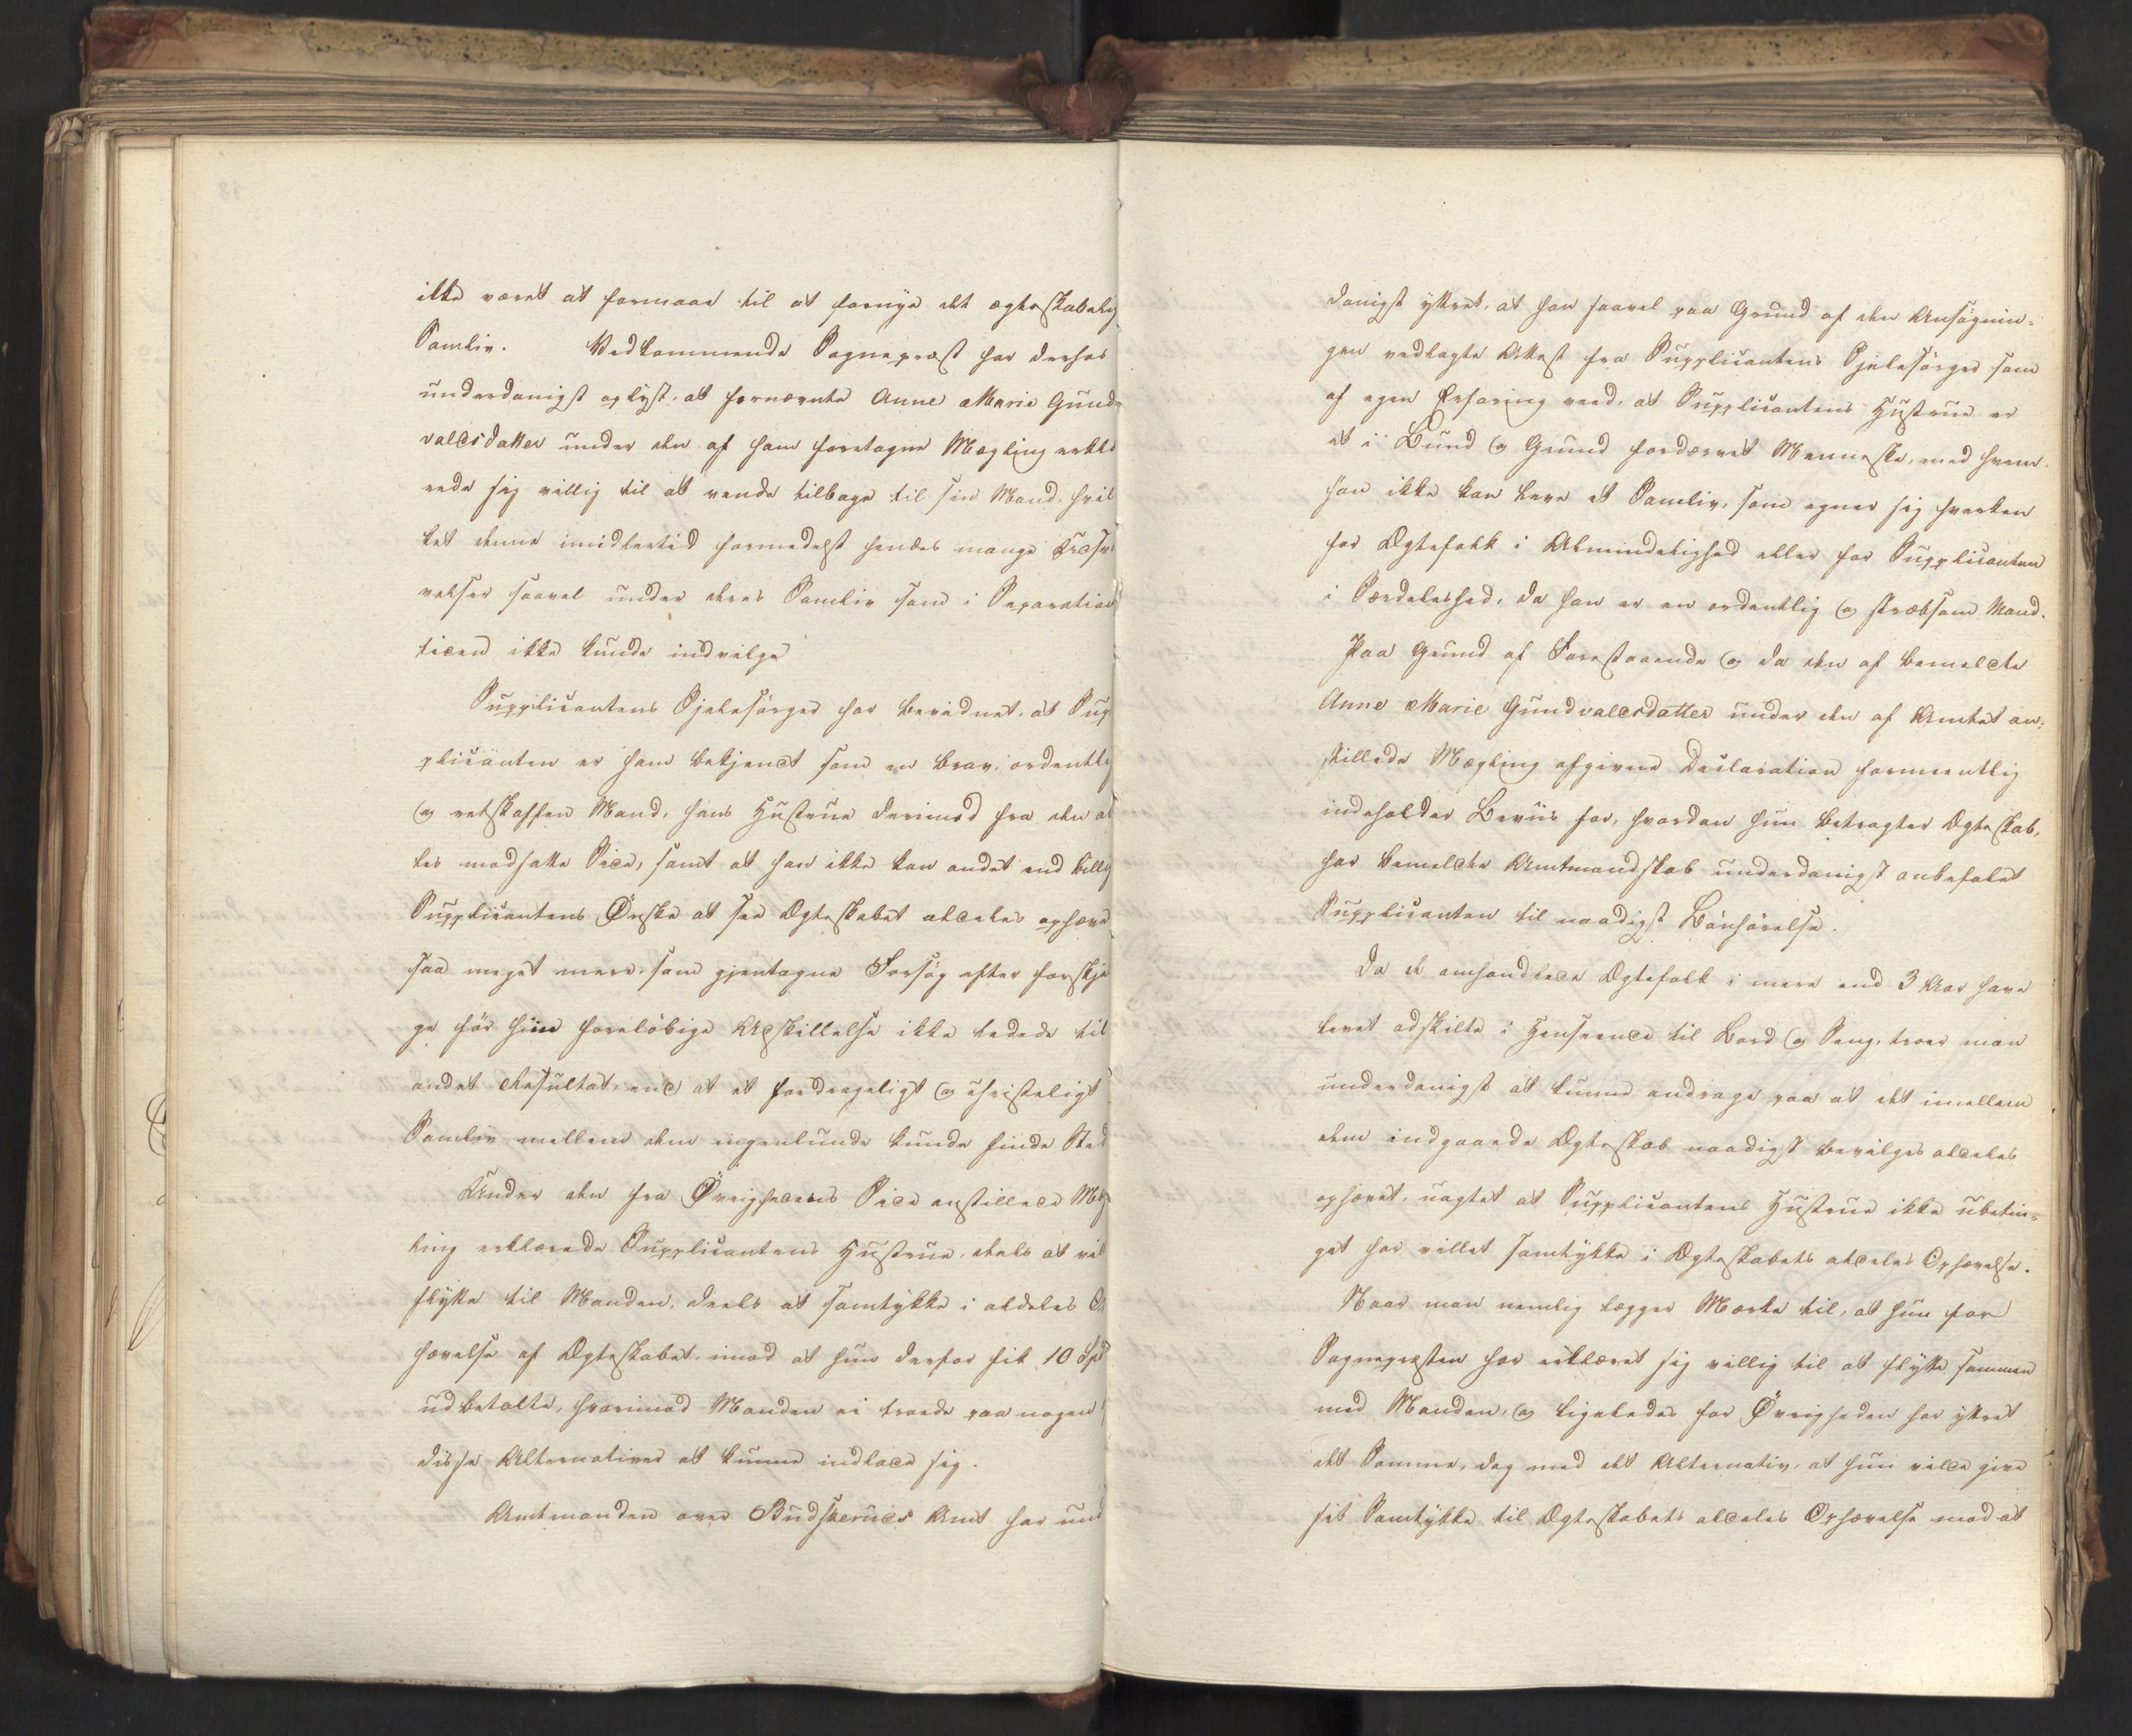 ikke været at formaae til at fornye det ægteskabelig
Samliv. Vedkommende Sognepræst har derhos
underdanigst oplyst, at fornævnte Anne Marie Gund-
valdsdatter under den af ham foretagne Mægling erklæ
rede sig villig til at vende tilbage til sin Mand, hvil
ket denne imidlertid formedelst hendes mange Udsvæ
velser saavel under deres Samliv som i Separations
tiden ikke kunde indvilge
Supplicantens Sjelesørger har bevidnet, at Sup
plicanten er ham bekjendt som en brav, ordentlig
og retskaffen Mand, hans Hustrue derimod fra den al
les modsatte Side, samt at han ikke kan andet end billig
Supplicantens Ønske at see Ægteskabet aldeles ophæve
saa meget mere, som gjentagne Forsøg efter forskje
ge før hiin foreløbige Adskillelse ikke ledede til
andet Resultat, end at et fordrageligt og christeligt
Samliv mellem dem ingenlunde kunde finde Sted
Under den fra Øvrighedens Side anstillede Mæg
ling erklærede Supplicantens Hustrue, deels at vil
flytte til Manden, deels at samtykke i aldeles Op
hævelse af Ægteskabet, imod at hun derfor fik 10 Spd
udbetalte, hvorimod Manden ei troede paa nogen
disse Alternativer at kunne indlade sig.
Amtmanden over Budskeruds Amt har und
danigst yttret, at han saavel paa Grund af den Ansøgnin-
gen vedlagte Attest fra Supplicantens Sjelesørger som
af egen Erfaring veed, at Supplicantens Hustrue er
et i Bund og Grund fordærvet Menneske, med hvem
han ikke kan leve et Samliv, som egner sig hverken
for Ægtefolk i Almindelighed eller for Supplicanten
i Særdeleshed, da han er en ordentlig og stræbsom Mand.
Paa Grund af Forestaaende og da den af bemeldte
Anne Marie Gundvaldsdatter under den af Amtet an-
stillede Mægling afgivne Declaration formeentlig
indeholder Beviis for, hvordan hun betragter Ægteskab,
har bemeldte Amtmandskab underdanigst anbefalet
Supplicanten til naadigst Bønhørelse.
Da de omhandlede Ægtefolk i mere end 3 Aar have
levet adskilte i Henseende til Bord og Seng, troer man
underdanigst at kunne andrage paa at det imellem
dem indgaaede Ægteskab naadigst bevilges aldeles
ophævet, uagtet at Supplicantens Hustrue ikke ubetin-
get har villet samtykke i Ægteskabets aldeles Ophævelse.
Naar man nemlig lægger Mærke til, at hun for
Sognepræsten har erklæret sig villig til at flytte sammen
med Manden, og ligeledes for Øvrigheden har yttret
det Samme, dog med det Alternativ, at hun vilde give
sit Samtykke til Ægteskabets aldeles Ophævelse mod at